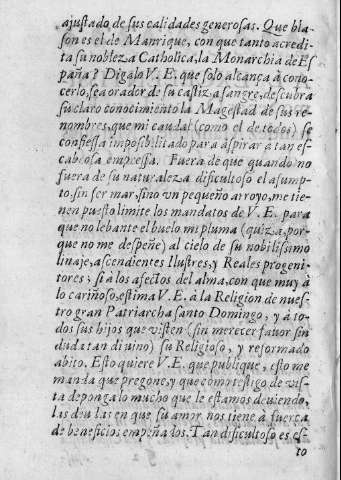 ajustado de sus calidades generosas. Que bla-
son es el de Manrique, con que tanto acredi-
ta su nobleza Catholica, la Monarchia de Es
paña? Digalo V. E. que solo alcança à cono-
cerlo, sea orador de su castiza sangre, descubra
su claro conocimiento la Magestad de sus re-
nombres, que mi caudal (como el de todos) se
confiessa imposibilitado para aspirar a tan es-
cabrosa empressa. Fuera de que quando no
fuera de su naturaleza dificultoso el asump-
to, sin ser mar, sino vn pequeño arroyo, me tie-
nen puesto limite los mandatos de V. E. para
que no lebante el buelo mi pluma (quiza, por-
que no me despeñe) al cielo de su nobilissimo
linaje, ascendientes Ilustres, y Reales progeni
tores; si à los afectos del alma, con que muy à
lo cariñoso, estima V. E. à la Religion de nues-
tro gran Patriarcha santo Domingo, y à to-
dos sus hijos que visten (sin merecer fauor sin
duda tan diuino) su Religioso, y reformado
abito. Esto quiere V. E. que publique, esto me
manda que pregone, y que como testigo de vis-
ta deponga lo mucho que le estamos deuiendo,
las deudas en que su amor nos tiene à fuerça
de beneficios empeñados. Tan dificultoso es es-
to